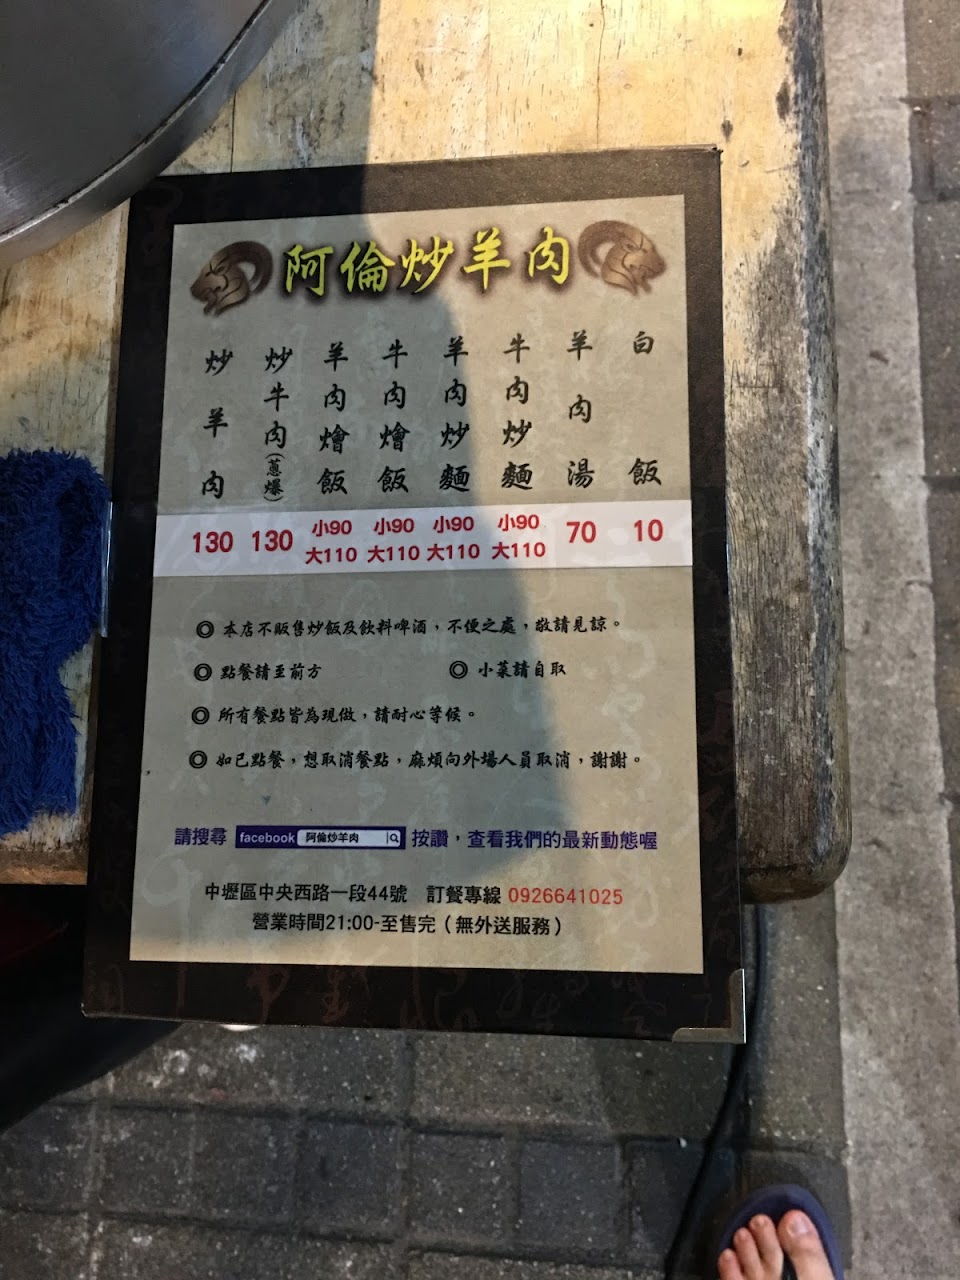 阿倫炒羊肉
炒羊肉
炒牛肉(蔥爆)
羊肉燴飯
牛肉燴飯
羊肉炒麵
牛肉炒麵
羊肉湯
白飯
130
130
小90
大110
小90
大110
小90
大110
小90
大110
70
10
◎ 本店不販售炒飯及飲料啤酒，不便之處，敬請見諒。
◎ 點餐請至前方
◎ 小菜請自取
◎ 所有餐點皆為現做，請耐心等候。
◎ 如已點餐，想取消餐點，麻煩向外場人員取消，謝謝。
請搜尋 facebook 阿倫炒羊肉 按讚，查看我們的最新動態喔
中壢區中央西路一段44號 訂餐專線 0926641025
營業時間21:00-至售完（無外送服務）